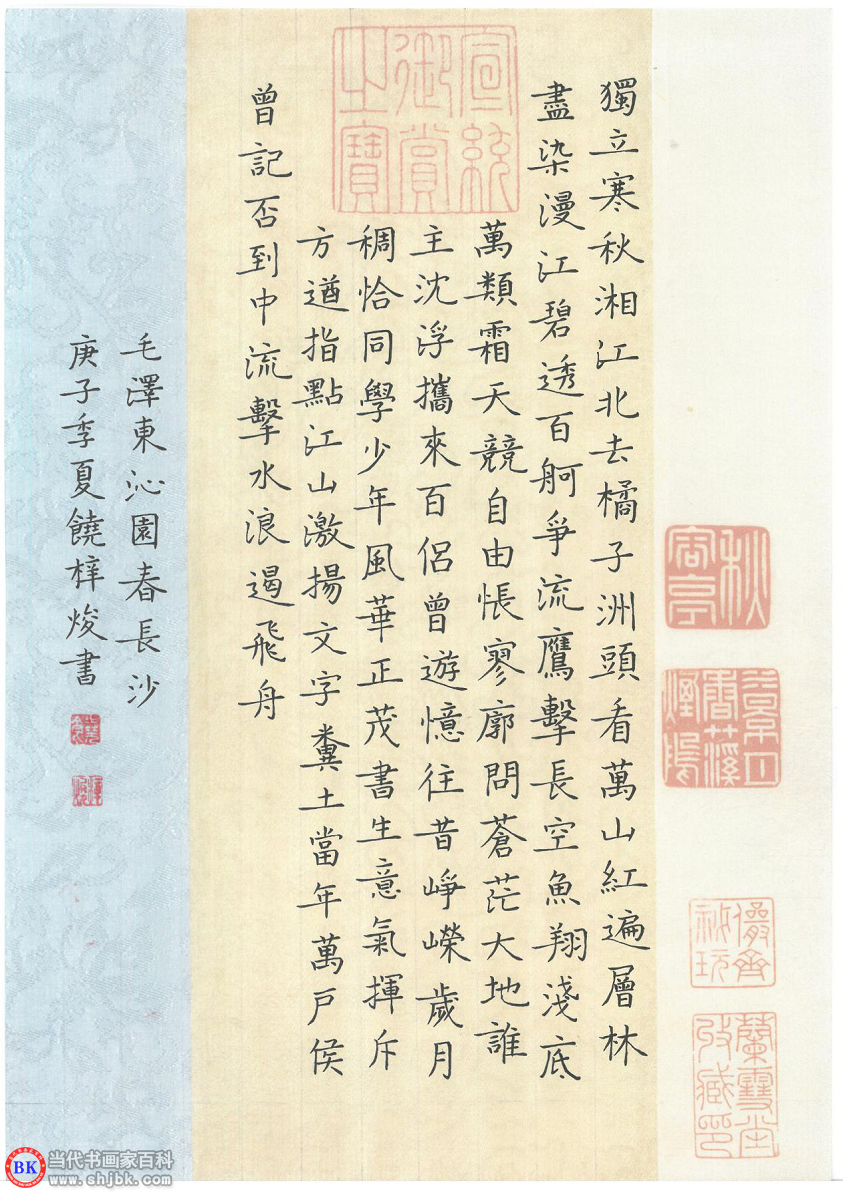 獨立寒秋湘江北去橘子洲頭看萬山紅遍層林
盡染漫江碧透百舸爭流鷹擊長空魚翔淺底
萬類霜天競自由悵寥廓問蒼茫大地誰
主沈浮攜來百侶曾遊憶往昔崢嶸歲月
稠恰同學少年風華正茂書生意氣揮斥
方遒指點江山激揚文字糞土當年萬戶侯
曾記否到中流擊水浪遏飛舟
毛澤東沁園春長沙
庚子季夏饒梓焌書
宣統
御賞
之寶
儼齋
秘玩
蘭雪堂
收藏印
BK
当代书画家百科
www.shjbk.com